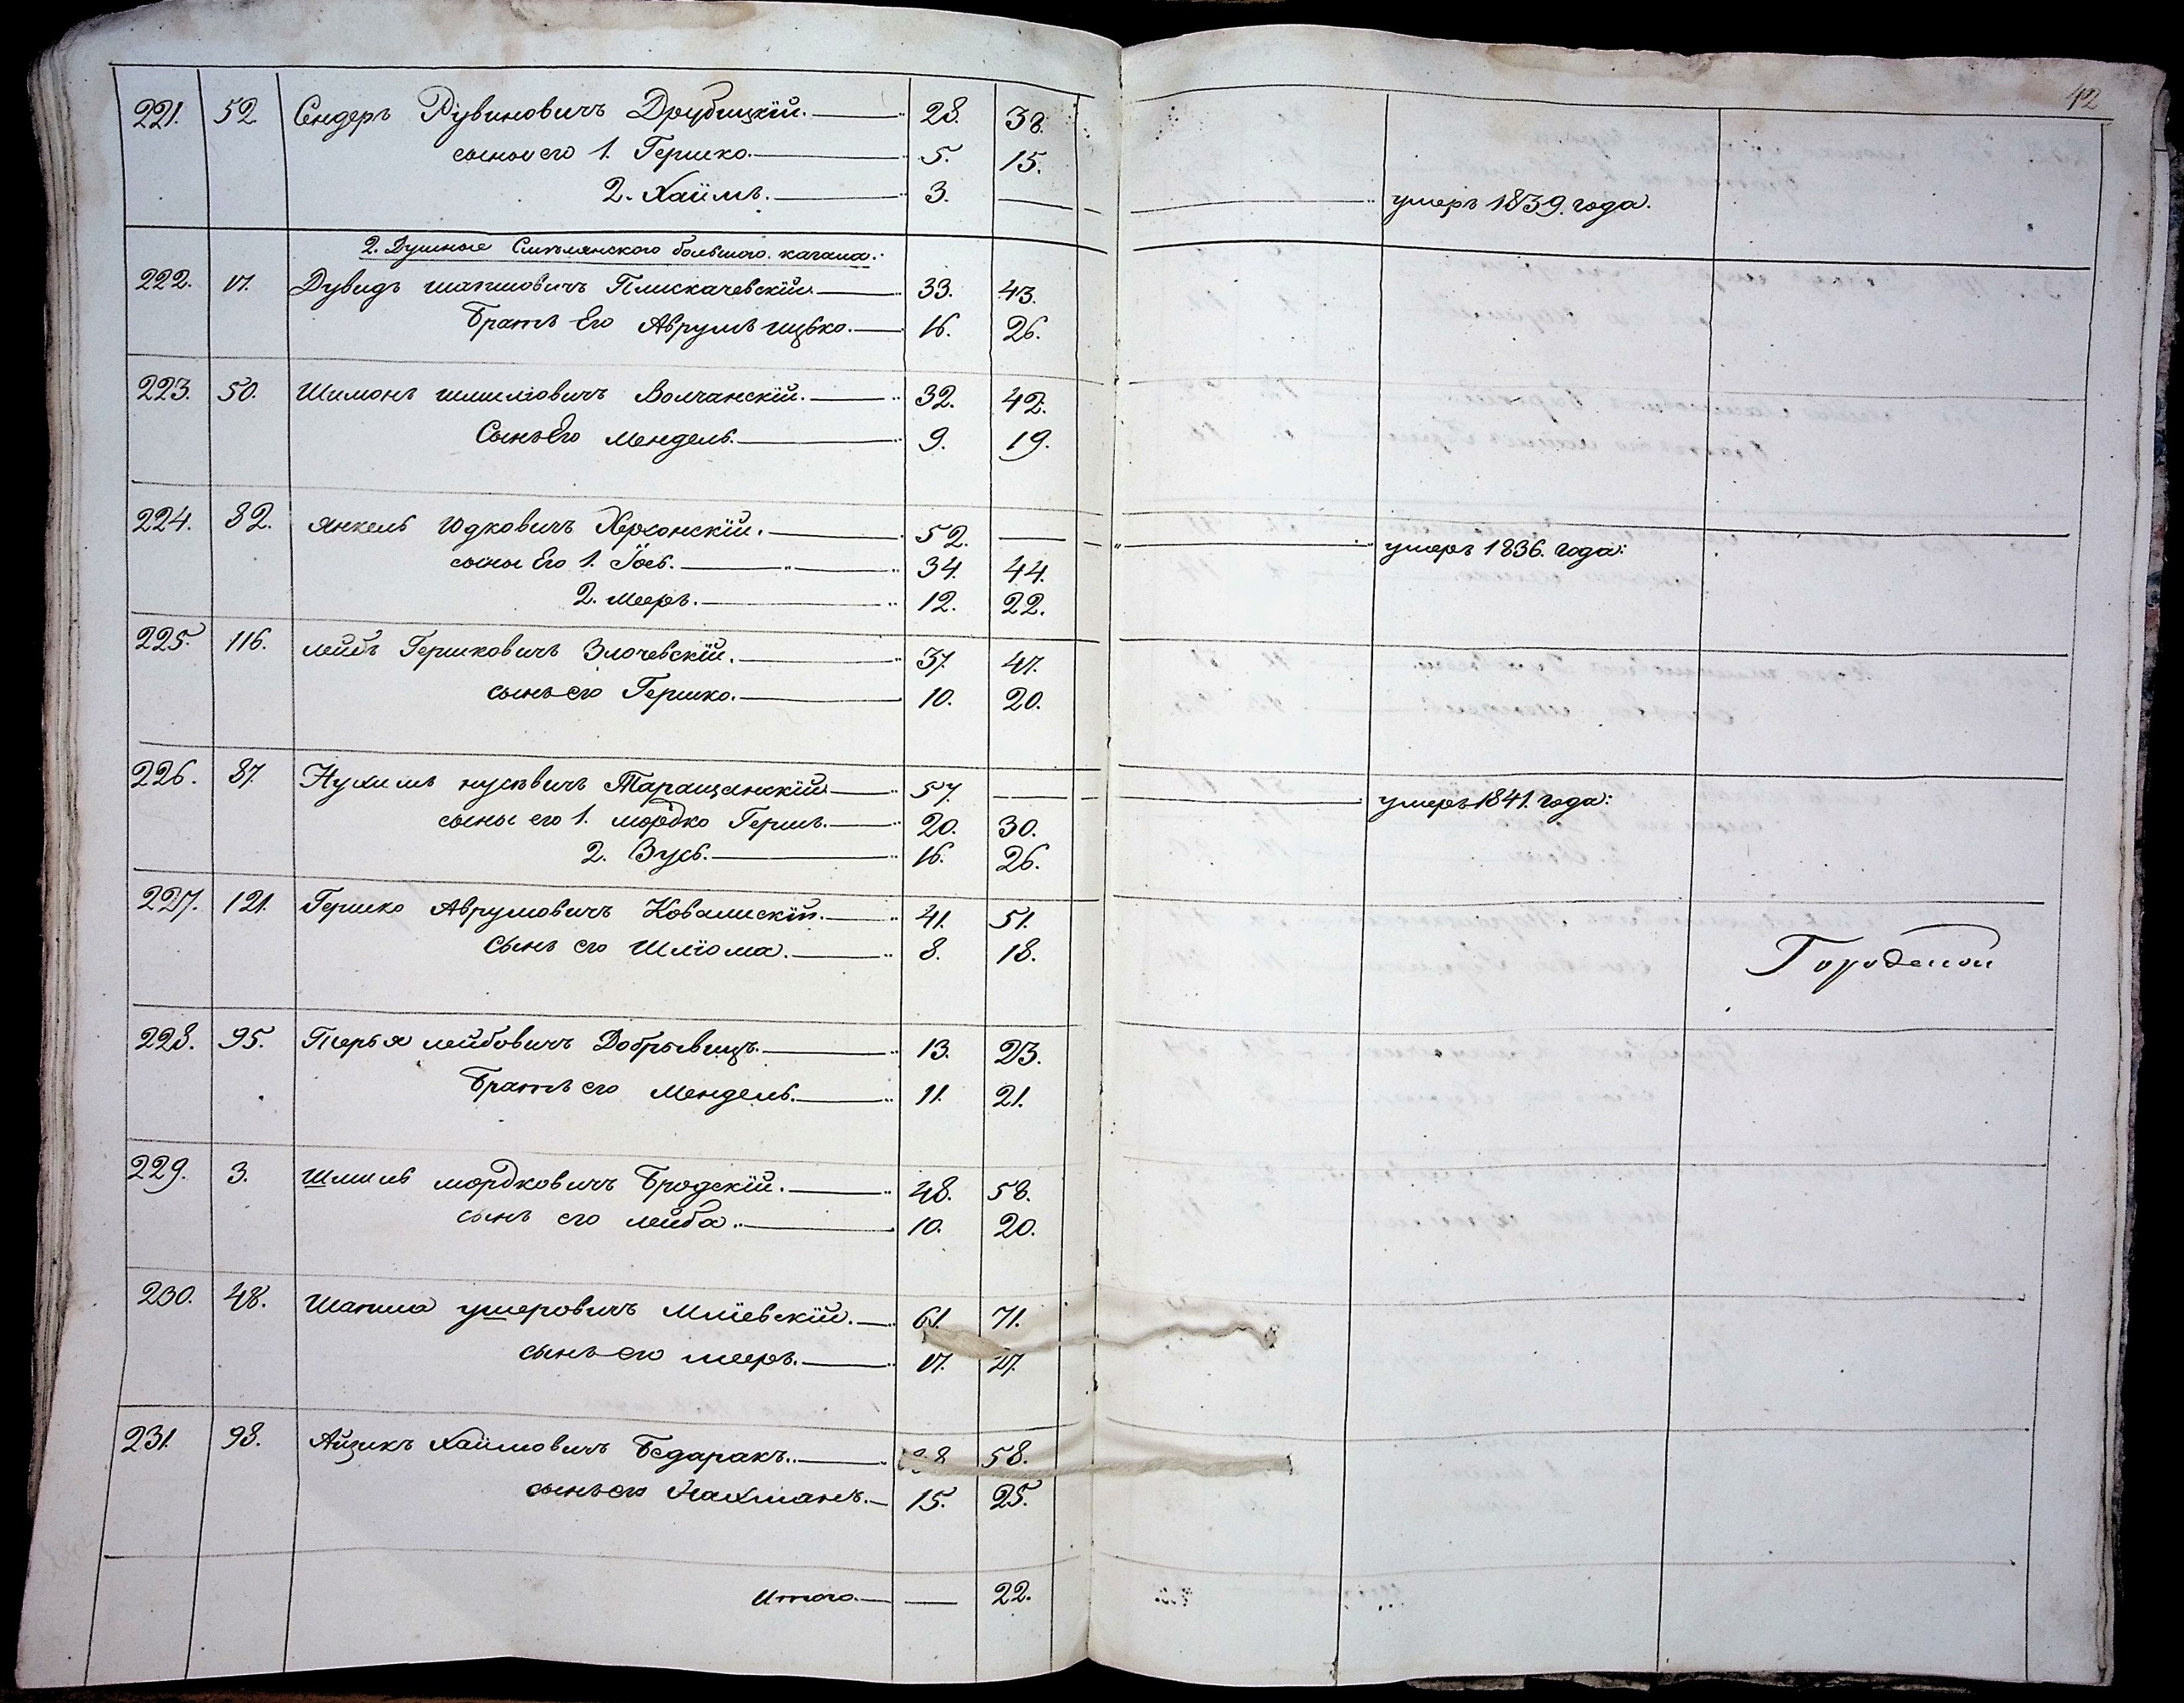 42
221. 52. Сендеръ Рувиновичъ Друбицкій. 28. 38.
сыновего 1. Гершко. 5. 15.
2. Хаимъ. 3. — умеръ 1839. года.
2. Душные Смѣлянского большого. кагала.
222. 17. Дувидъ шапшовичъ Плискачевскій 33. 43.
Братъ Его Аврумъ ицько. 16. 26.
223. 50. Шимонъ шмилювичъ Волчанскій. 32. 42.
Сынъ Его Мендель. 9. 19.
224. 82. Янкель Юдковичъ Херсонскій. 52. — умеръ 1836. года:
сыны Его 1. Іось. 34. 44.
2. Мееръ. 12. 22.
225. 116. лейбъ Гершковичъ Злочевскій. 37. 47.
сынъ его Гершко. 10. 20.
226. 87. Нухимъ нусевичъ Таращанскій 57. — умеръ 1841. года:
сыны его 1. мордко Гершъ. 20. 30.
2. Зусь. 16. 26.
227. 121. Гершко Аврумовичъ Ковалискій. 41. 51.
Сынъ его Шліома. 8. 18.
228. 95. Перья лейбовичъ Добрывицъ. 13. 23.
Братъ его Мендель. 11. 21.
229. 3. Шмиль мордковичъ Бродскій. 48. 58.
сынъ его лейба. 10. 20.
230. 48. Шапша ушеровичъ Мліевскій. 61. 71.
сынъ его мееръ. 17. 27.
231. 98. Айзикъ Хаимовичъ Бедаракъ. 58.
сынъ его Нахманъ. 15. 25.
Итого. — 22.